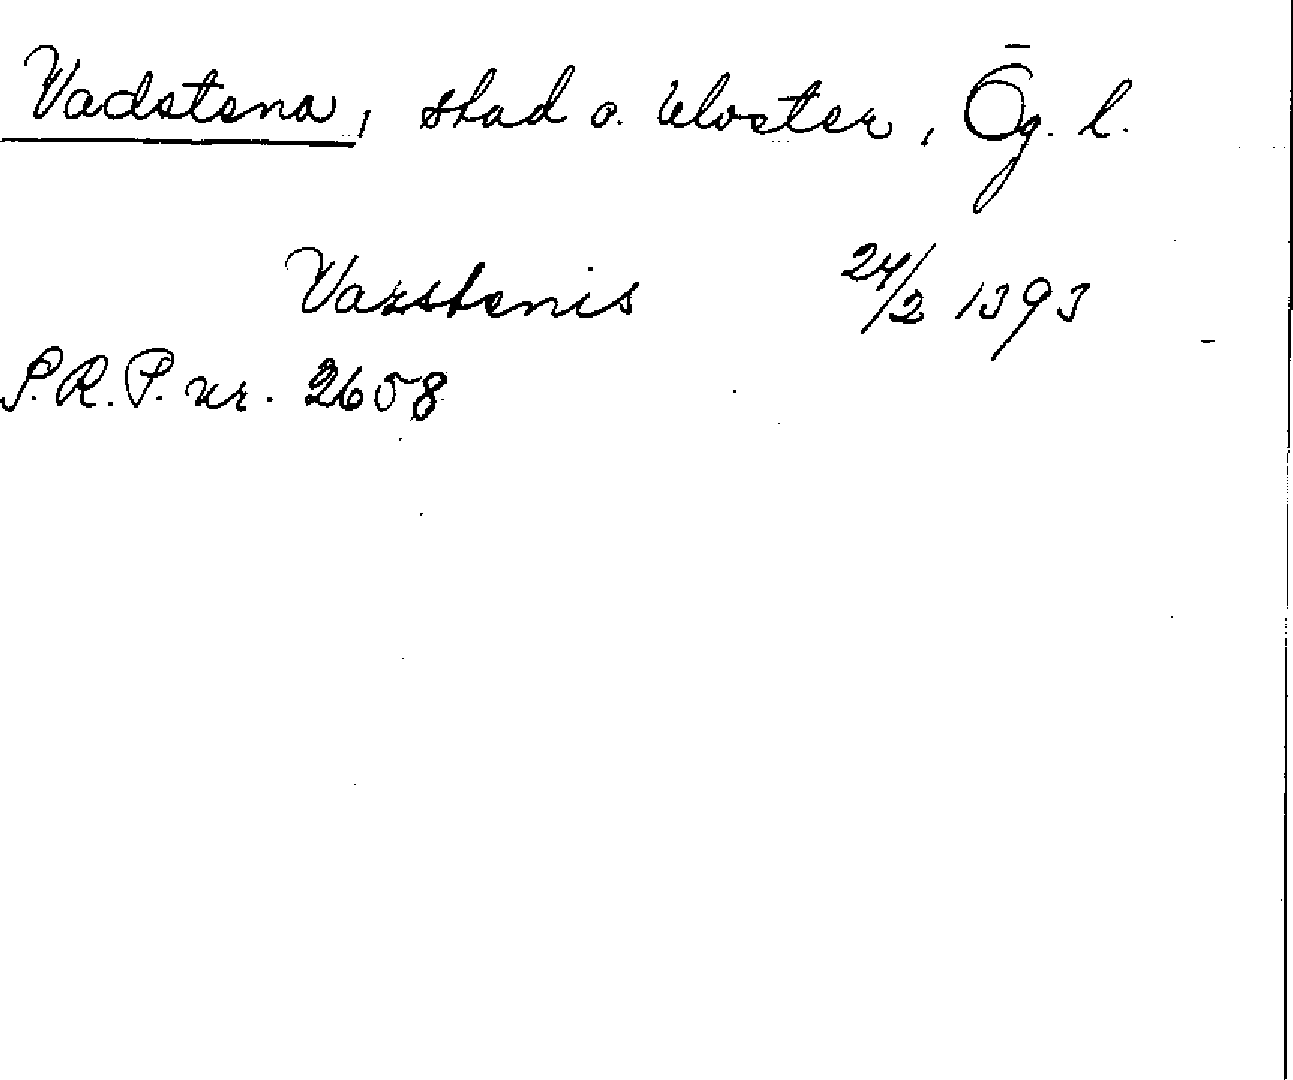 Vadstena, stad o. kloster, Ög. l.
Vazstenis 24/2 1393
S.R.P. nr. 2658